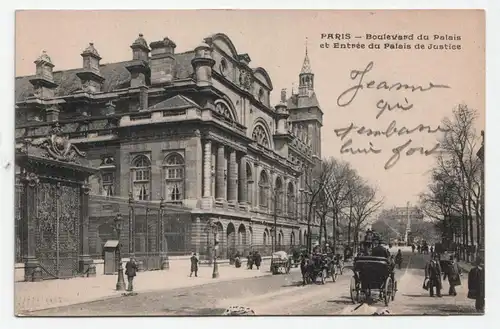 PARIS – Boulevard du Palais
et Entrée du Palais de Justice
Jeanne
qui
t'embrasse
bien fort